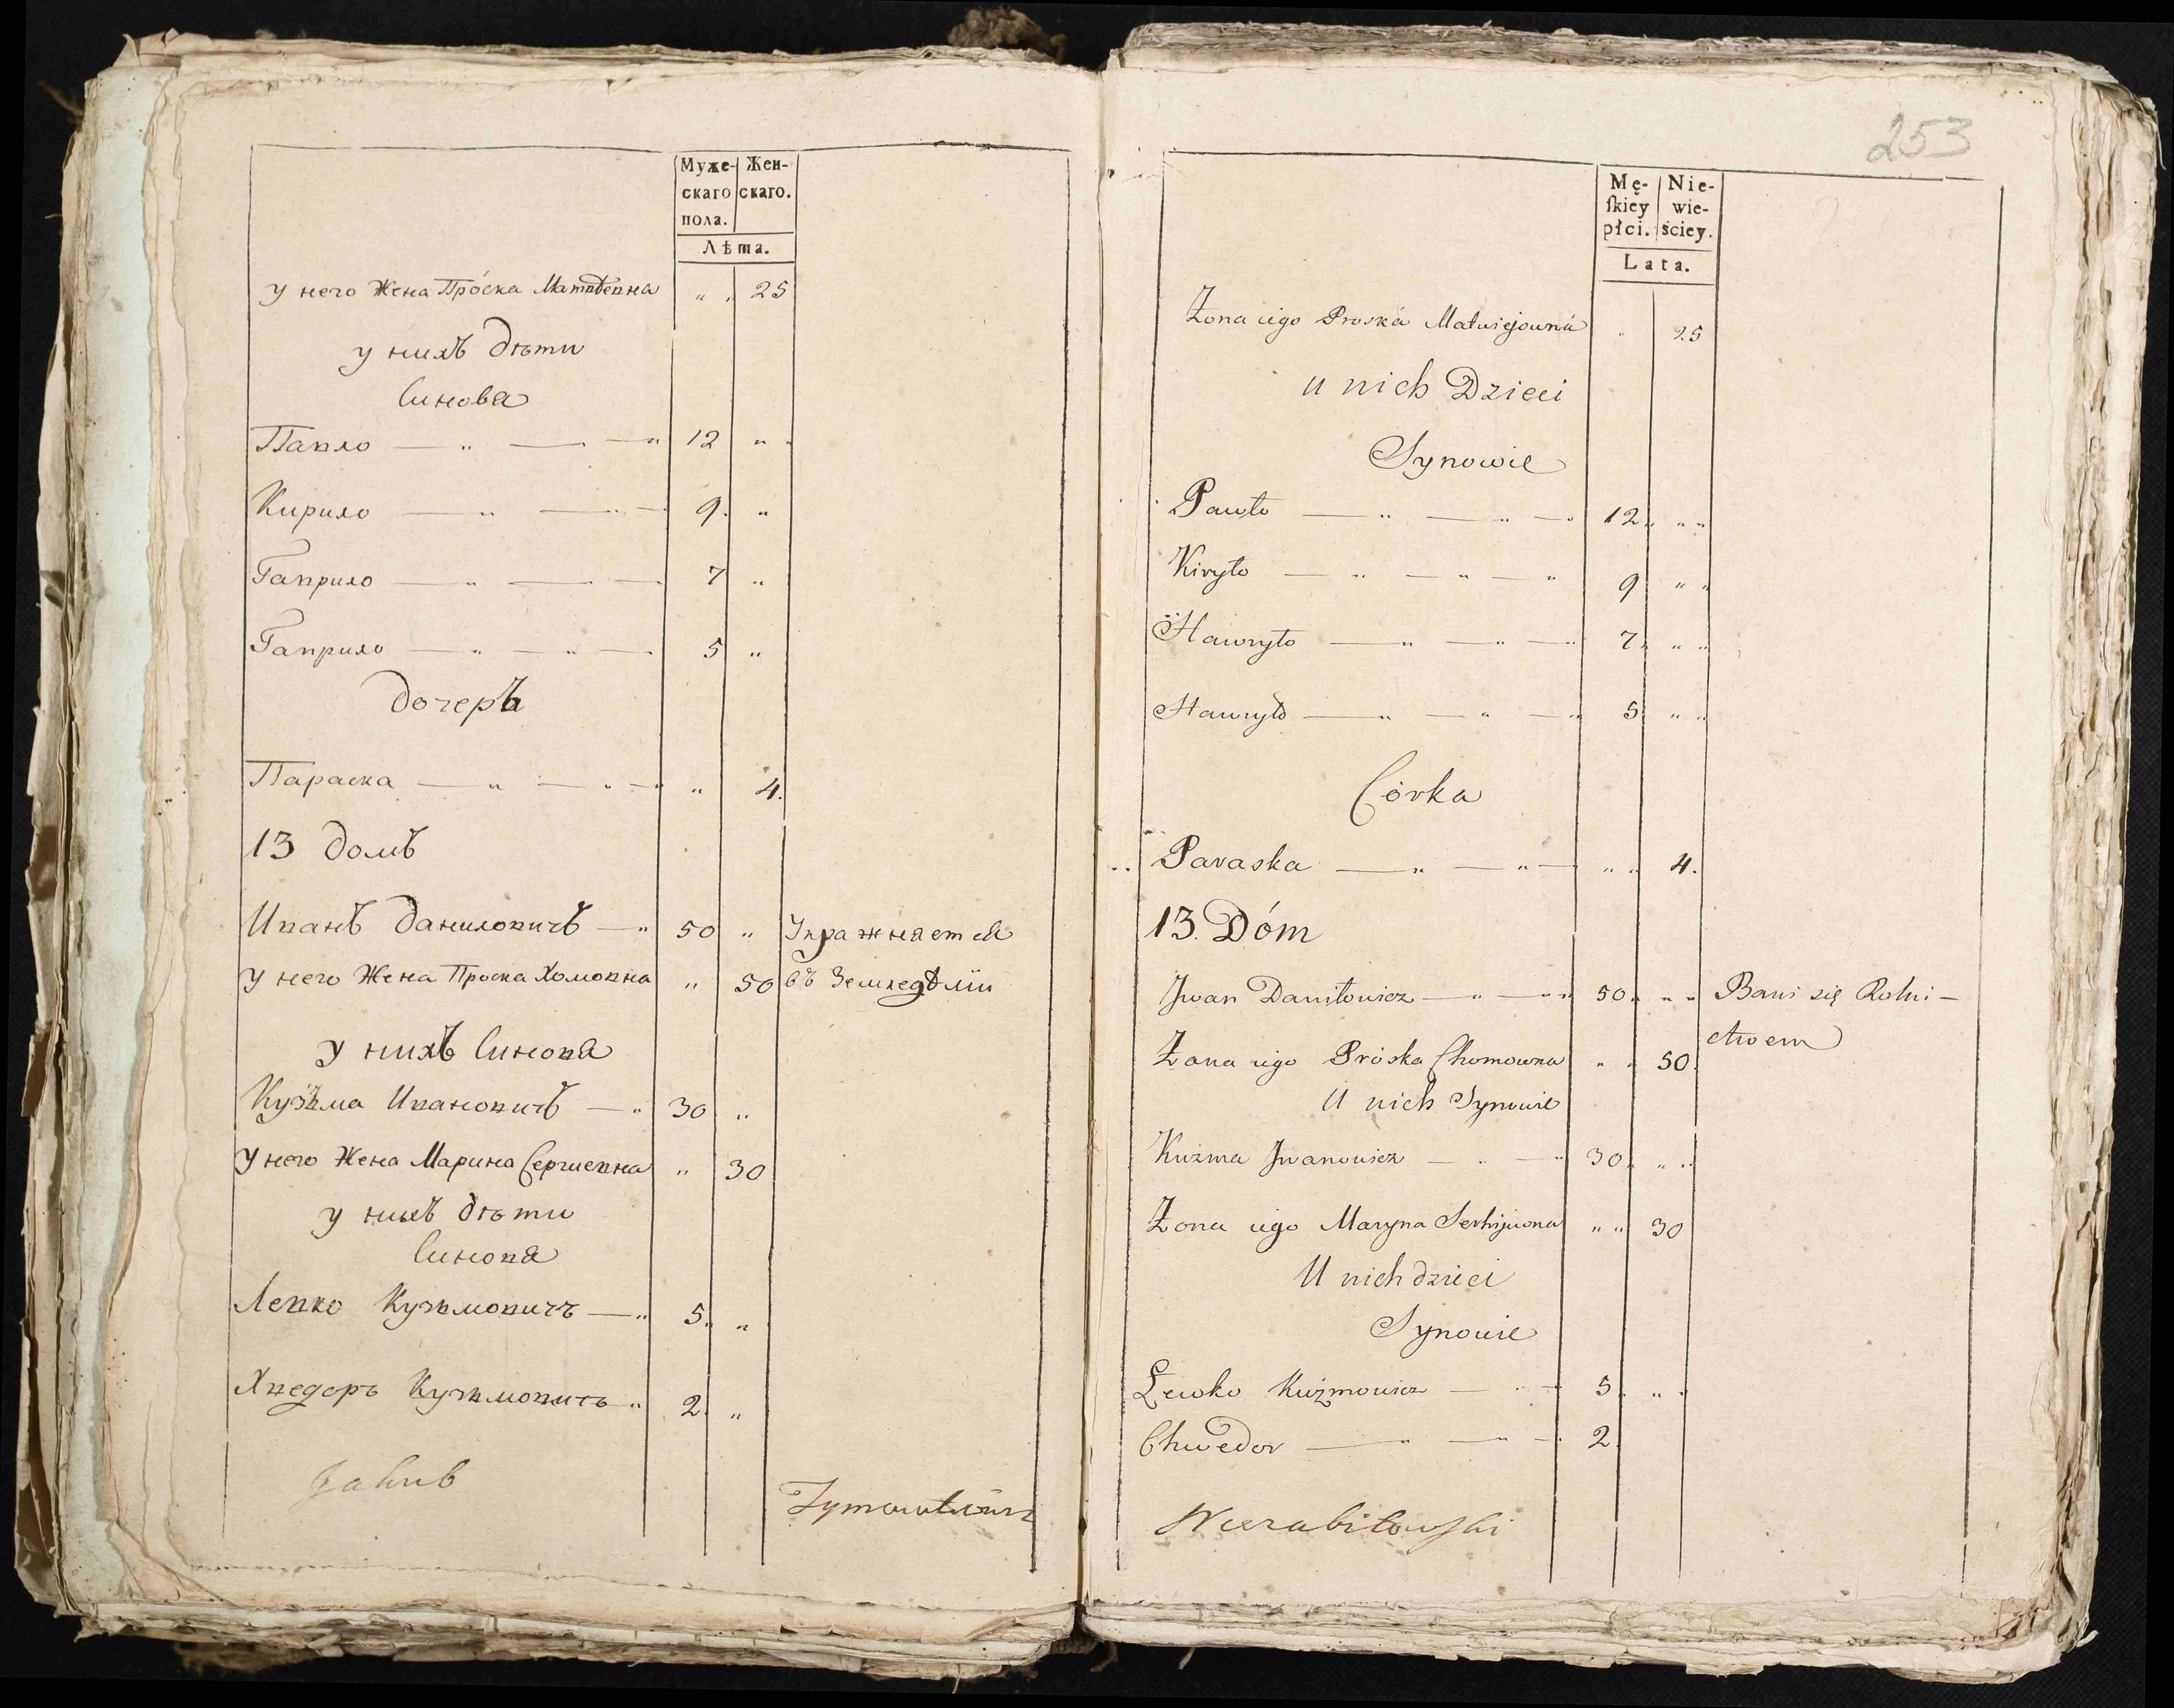 Муже- Жен-
скаго скаго.
пола.
Лѣта.
у него Жена Про́ска Матвѣевна " " 25
у нихъ дѣти
Синовя
Павло — " — — " 12 " "
Кирило — " — — 9. "
Гаврило — " — — 7 "
Гаврило — " — " — 5 "
дочеръ
Параска — " — " — " " 4.
13 домъ
Иванъ Даниловичъ — " 50 " Упражняется
у него Жена Проска Хомовна " 50 въ Земледѣлїи
у нихъ Синовя
Кузьма Ивановичъ — " 30 "
У него Жена Марина Сергиевна " 30
у нихъ дѣти
Синовя
Левко Кузьмовичъ — " 5. "
Хведоръ Кузьмовичъ " 2. "
Jakub
253
Mę- Nie-
ſkiey wie-
płci. ściey.
Lata.
Żona iego Proska Matwiejowna " 25
u nich Dzieci
Synowie
Pawło — " — " — " 12 " " "
Kiryło — " — " — " 9 " "
Hawryło — " — " — " 7 " " "
Hawryło — " — " — " 5 " "
Córka
Paraska — " — " — " " 4.
13. Dóm
Jwan Daniłowicz — " — " " 50 " " " Bawi się Rolni-
Żona iego Próska Chomowna " " 50 ctwem
U nich Synowie
Kuźma Jwanowicz — " — " 30 " " "
Żona iego Maryna Serhijwona " " 30
U nich dzieci
Synowie
Lewko Kuźmowicz — " — 5 " "
Chwedor — " — " — 2